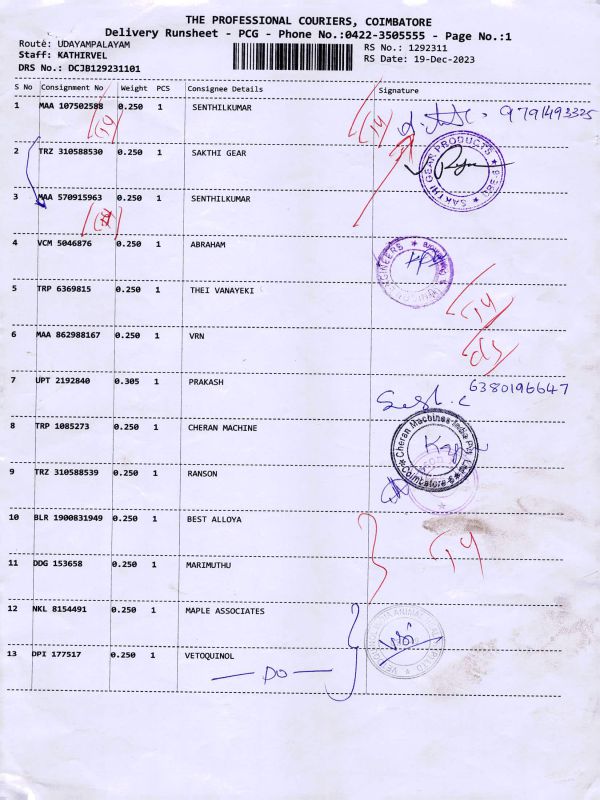 THE PROFESSIONAL COURIERS, COIMBATORE
Delivery Runsheet - PCG - Phone No.:0422-3505555 - Page No.:1
Route: UDAYAMPALAYAM
RS No.: 1292311
Staff: KATHIRVEL
RS Date: 19-Dec-2023
DRS No.: DCJB129231101
S No Consignment No Weight PCS Consignee Details Signature
1 MAA 107502588 0.250 1 SENTHILKUMAR 9791493325
2 TRZ 310588530 0.250 1 SAKTHI GEAR
SAKTHI GEAR PRODUCTS
3 MAA 570915963 0.250 1 SENTHILKUMAR
4 VCM 5046876 0.250 1 ABRAHAM
5 TRP 6369815 0.250 1 THEI VANAYEKI
6 MAA 862988167 0.250 1 VRN
7 UPT 2192840 0.305 1 PRAKASH 6380196647
8 TRP 1085273 0.250 1 CHERAN MACHINE
Cheran Machines India Pvt. Ltd.
Coimbatore
9 TRZ 310588539 0.250 1 RANSON
10 BLR 1900831949 0.250 1 BEST ALLOYA
11 DDG 153658 0.250 1 MARIMUTHU
12 NKL 8154491 0.250 1 MAPLE ASSOCIATES
13 DPI 177517 0.250 1 VETOQUINOL
— DO —